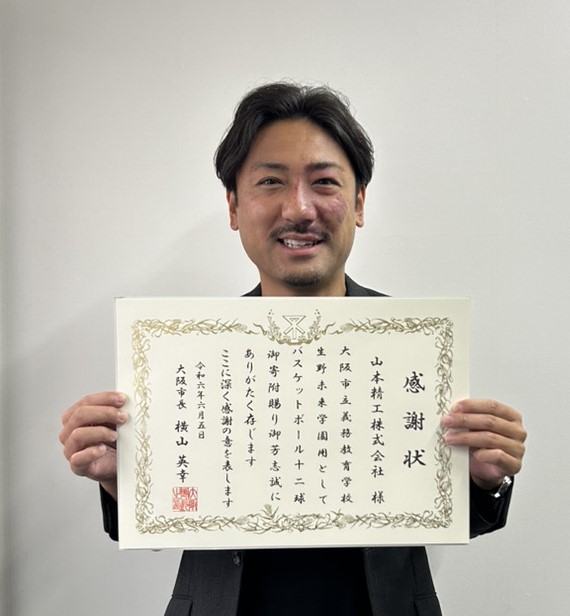 感謝状
山本精工株式会社 様
大阪市立義務教育学校
生野未来学園用として
バスケットボール十二球
御寄附賜り御芳志誠に
ありがたく存じます
ここに深く感謝の意を表します
令和六年六月五日
大阪市長 横山英幸